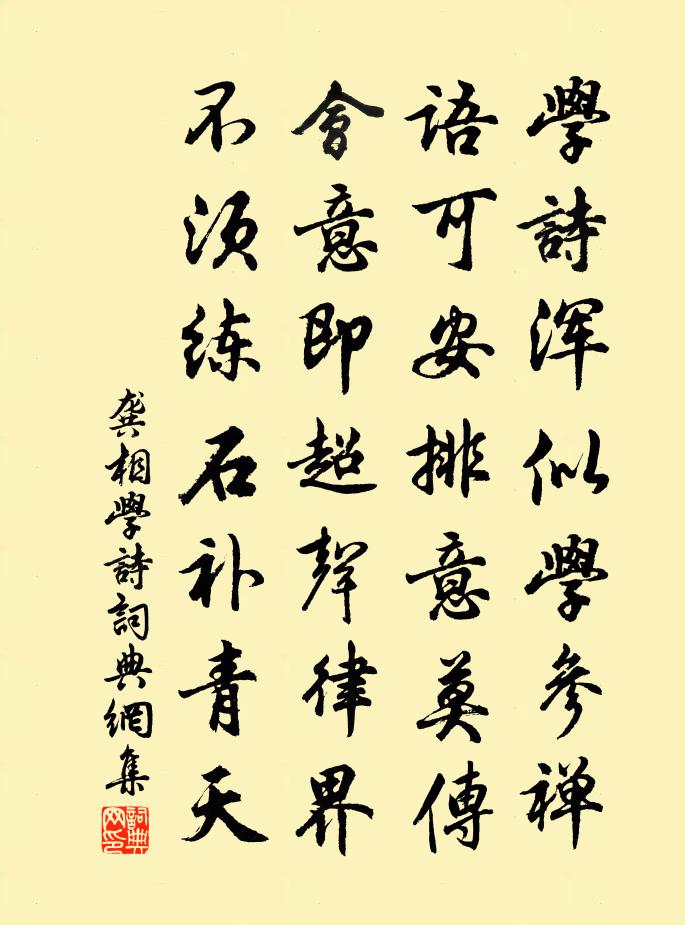 學詩浑似學參禅
語可安排意莫傳
會意即超聲律界
不须练石补青天
龚相學詩詞典網集
詞典网印